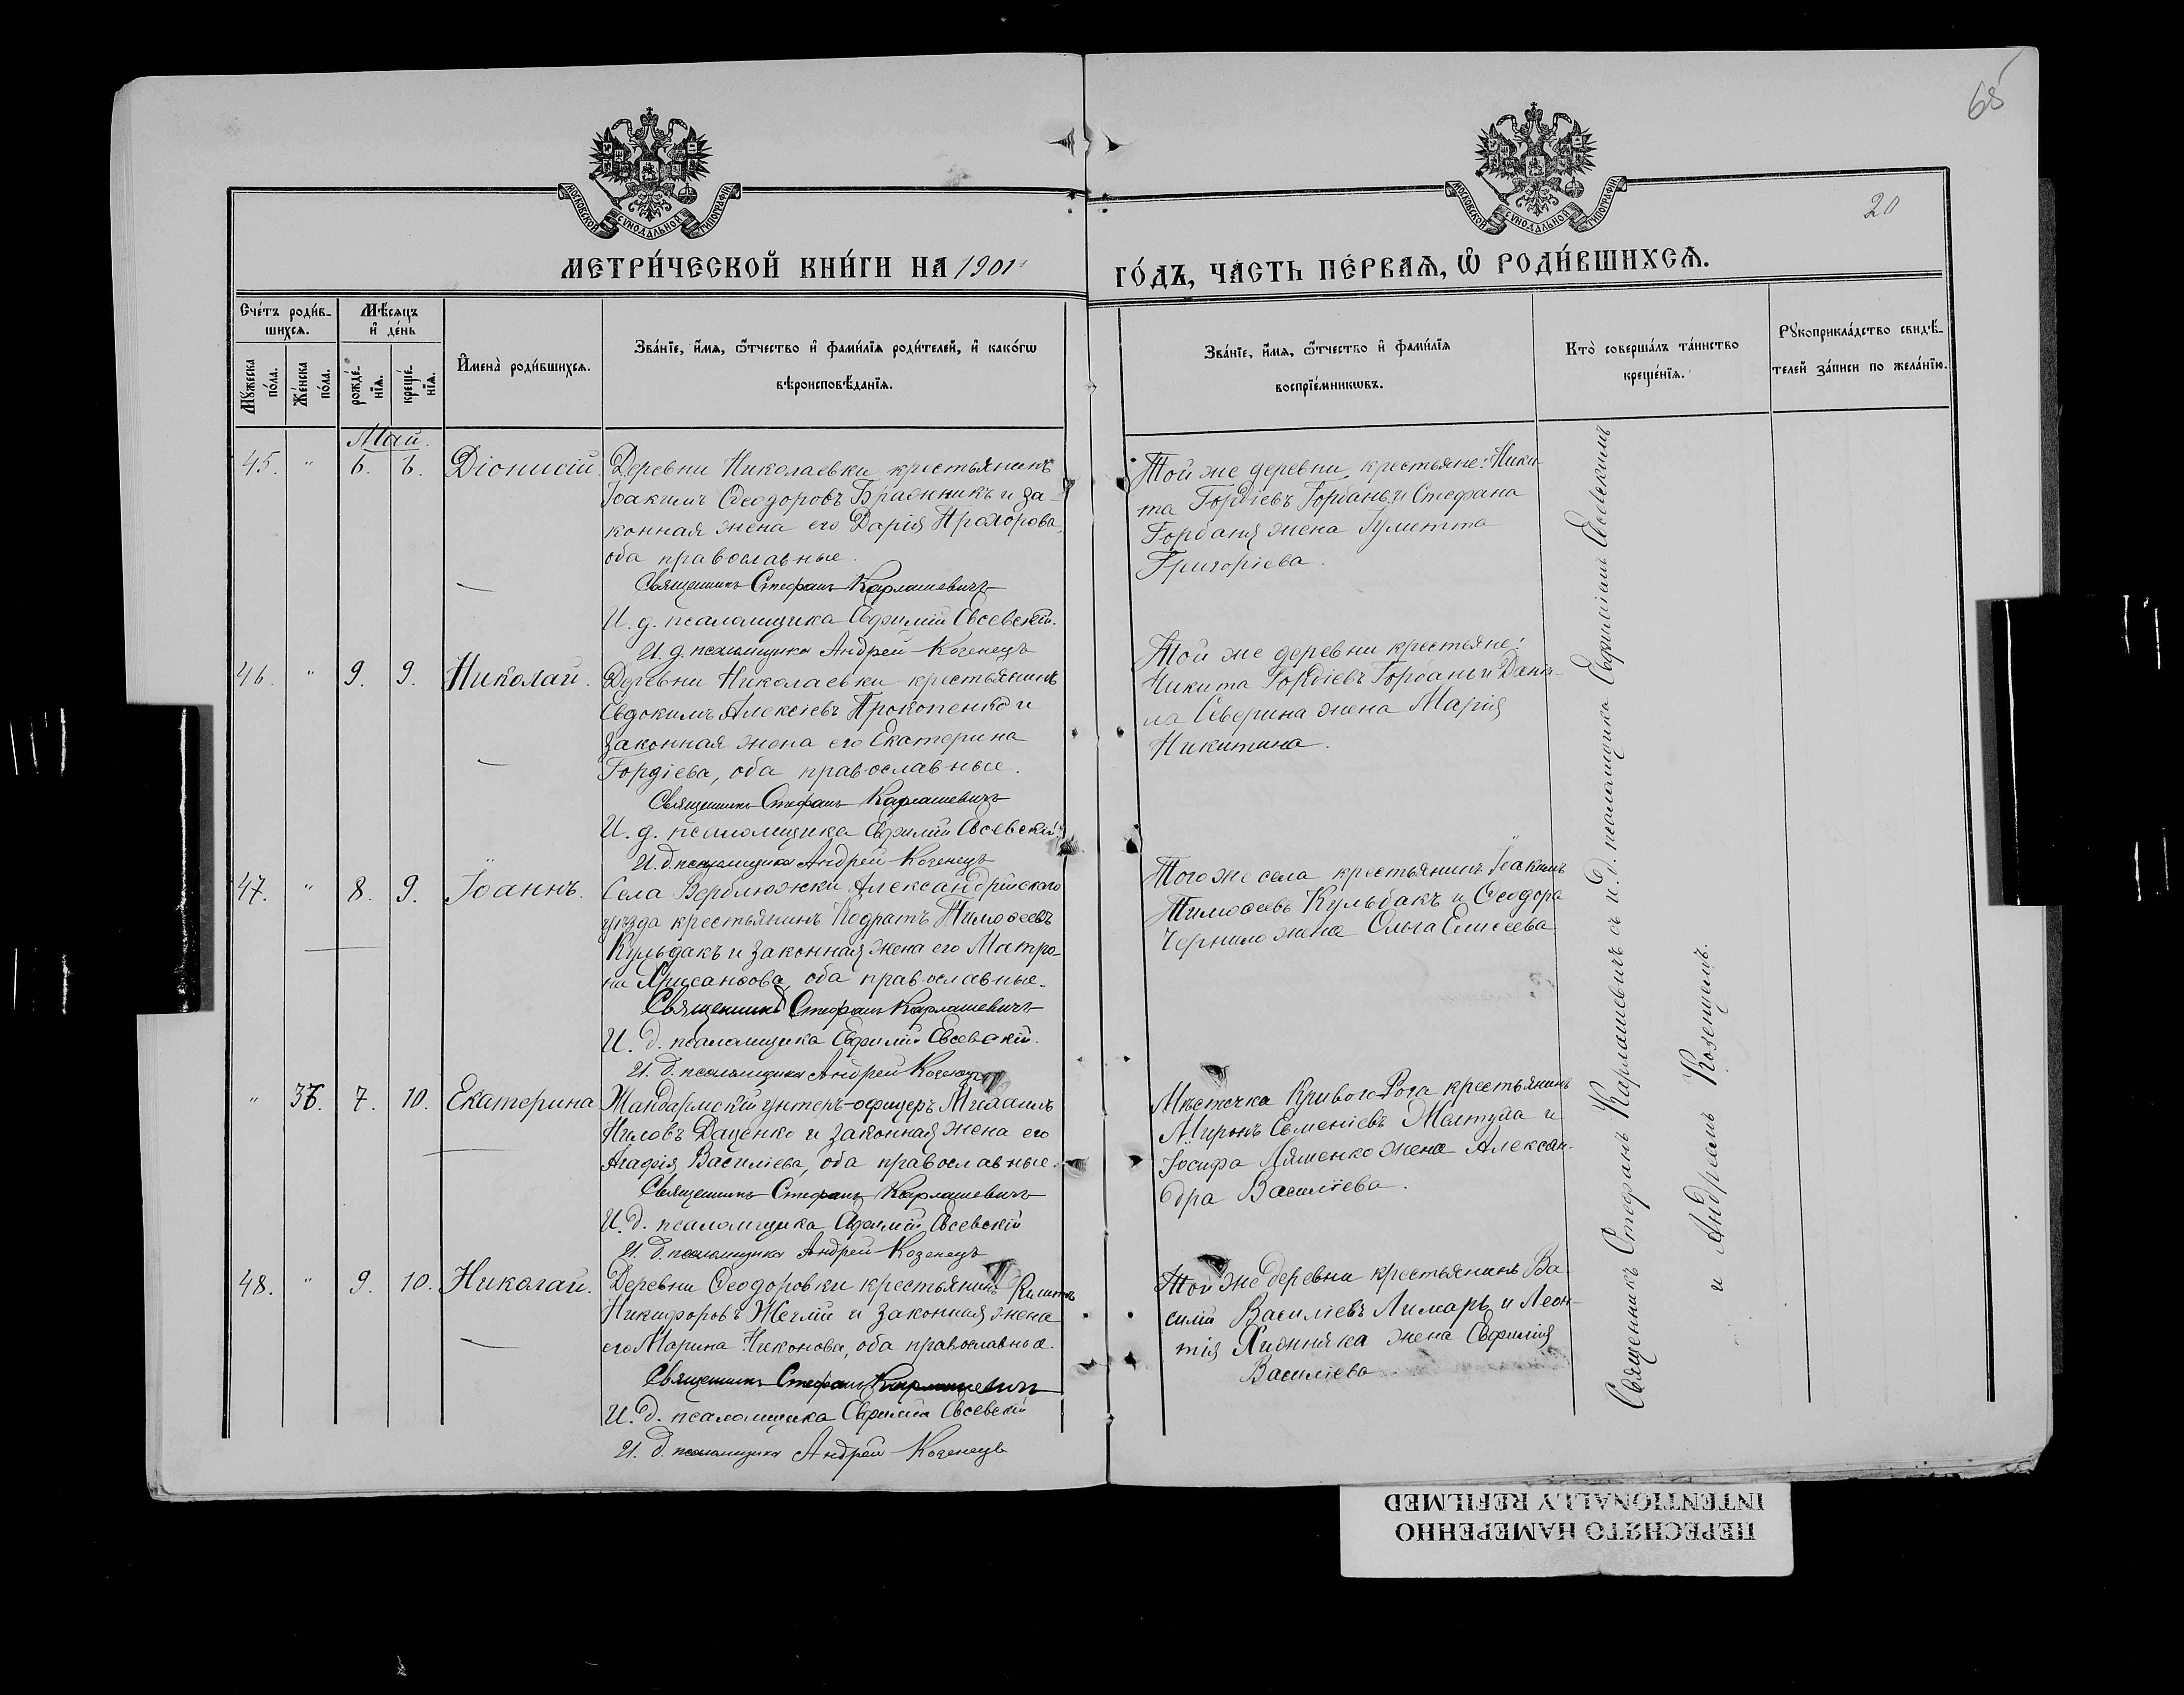 65
20
МОСКОВСКОЙ СѴНОДАЛЬНОЙ ТИПОГРАФІИ
МОСКОВСКОЙ СѴНОДАЛЬНОЙ ТИПОГРАФІИ
МЕТРИ́ЧЕСКОЙ КНИ́ГИ НА 1901
ГО́ДЪ, ЧА́СТЬ ПЕ́РВАѦ, Ѡ҆ РОДИ́ВШИХСѦ.
Сче́тъ роди́в-
шихсѧ.
Мѣ́сѧцъ
и҆ де́нь
Мꙋ́жеска
по́ла.
Же́нска
по́ла.
рожде́-
нїѧ.
креще́-
нїѧ.
И҆мена̀ роди́вшихсѧ.
Зва́нїе, и҆́мѧ, ѻ҆́тчество и҆ фами́лїѧ роди́телей, и҆ како́гѡ
вѣроисповѣ́данїѧ.
Зва́нїе, и҆́мѧ, ѻ҆́тчество и҆ фами́лїѧ
воспрїе́мникѡвъ.
Кто̀ соверша́лъ та́инство
креще́нїѧ.
Рꙋкоприкла́дство свидѣ́-
телей за́писи по жела́нїю.
Май.
45. " 6. 6. Діонисій.
Деревни Николаевки крестьянинъ
Іоакимъ Ѳеодоровъ Бражникъ и за-
конная жена его Дарія Прохорова,
оба православные.
Священникъ Стефанъ Карлашевичъ
И. д. псаломщика Евфимій Евсевскій.
И. д. псаломщика Андрей Козенецъ
Той же деревни крестьяне: Ники-
та Гордіевъ Горбань и Стефана
Горбаня жена Іулитта
Григоріева.
46. " 9. 9. Николай.
Деревни Николаевки крестьянинъ
Евдокимъ Алексіевъ Прокопенко и
законная жена его Екатерина
Гордіева, оба православные.
Священникъ Стефанъ Карлашевичъ
И. д. псаломщика Евфимій Евсевскій.
И. д. псаломщика Андрей Козенецъ
Той же деревни крестьяне:
Никита Гордіевъ Горбань и Дани-
ла Северина жена Марія
Никитина.
47. " 8. 9. Іоаннъ.
Села Верблюжки Александрійскаго
уѣзда крестьянинъ Кодратъ Тимоѳеевъ
Кульбакъ и законная жена его Матро-
на Хрисанѳова, оба православные.
Священникъ Стефанъ Карлашевичъ
И. д. псаломщика Евфимій Евсевскій.
И. д. псаломщика Андрей Козенецъ
Того же села крестьянинъ Іоакимъ
Тимоѳеевъ Кульбакъ и Ѳеодора
Чернило жена Ольга Елисеева
" 36. 7. 10. Екатерина
Жандармскій унтеръ-офицеръ Михаилъ
Ниловъ Даценко и законная жена его
Агафія Василіева, оба православные.
Священникъ Стефанъ Карлашевичъ
И. д. псаломщика Евфимій Евсевскій
И. д. псаломщика Андрей Козенецъ
Мѣстечка Кривого-Рога крестьянинъ
Миронъ Евменіевъ и
Іосифа Ляшенко жена Алексан-
дра Василіева.
48. " 9. 10. Николай.
Деревни Ѳеодоровки крестьянинъ
Никифоровъ и законная жена
его Марина Никонова, оба православные.
Священникъ Стефанъ Карлашевичъ
И. д. псаломщика Евфимій Евсевскій
И. д. псаломщика Андрей Козенецъ
Той же деревни крестьянинъ Ва-
силій Василіевъ Лимарь и Леон-
тія жена Евфимія
Василіева.
Священникъ Стефанъ Карлашевичъ съ и. д. псаломщика Евфиміемъ Евсевскимъ
и Андреемъ Козенцемъ.
ПЕРЕСНЯТО НАМЕРЕННО
INTENTIONALLY REFILMED